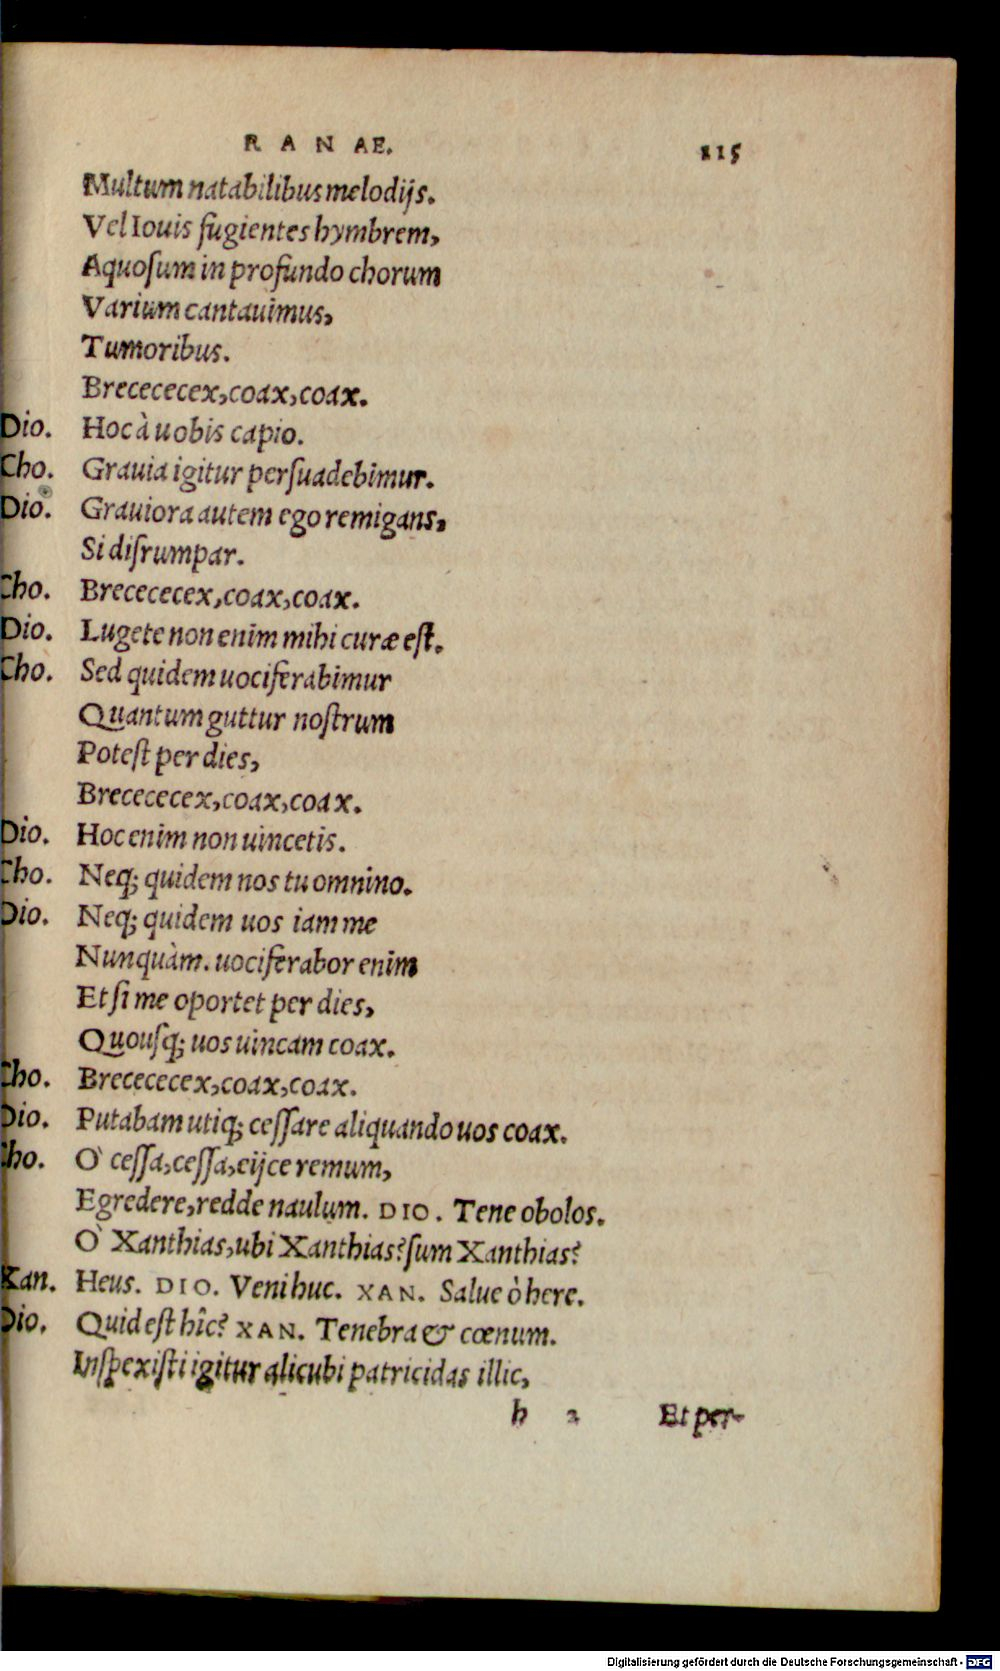 RANAE. 115
Multum natabilibus melodijs.
Vel Iouis fugientes hymbrem,
Aquosum in profundo chorum
Varium cantauimus,
Tumoribus.
Brecececex, coax, coax.
Dio. Hoc à uobis capio.
Cho. Grauia igitur persuadebimur.
Dio. Grauiora autem ego remigans,
Si disrumpar.
Cho. Brecececex, coax, coax.
Dio. Lugete non enim mihi curæ est.
Cho. Sed quidem uociferabimur
Quantum guttur nostrum
Potest per dies,
Brecececex, coax, coax.
Dio. Hoc enim non uincetis.
Cho. Neq; quidem nos tu omnino.
Dio. Neq; quidem uos iam me
Nunquàm. uociferabor enim
Et si me oportet per dies,
Quousq; uos uincam coax.
Cho. Brecececex, coax, coax.
Dio. Putabam utiq; cessare aliquando uos coax.
Cho. Ò cessa, cessa, eijce remum,
Egredere, redde naulum. DIO. Tene obolos.
Ò Xanthias, ubi Xanthias? sum Xanthias?
Xan. Heus. DIO. Veni huc. XAN. Salue ò here.
Dio. Quid est hîc? XAN. Tenebra & cœnum.
Inspexisti igitur alicubi patricidas illic,
h 2 Et per-
Digitalisierung gefördert durch die Deutsche Forschungsgemeinschaft - DFG